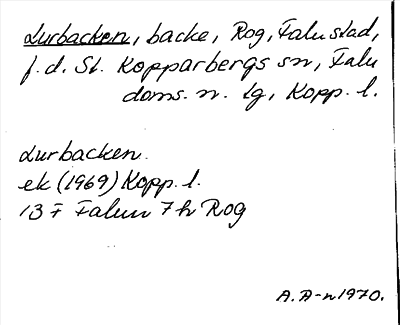 Lurbacken, backe, Rog, Falu stad,
f.d. St. Kopparbergs sn, Falu
doms. n. lg, Kopp. l.
Lurbacken.
ek (1969) Kopp. l.
13 F Falun 7 h Rog
A. A-n 1970.